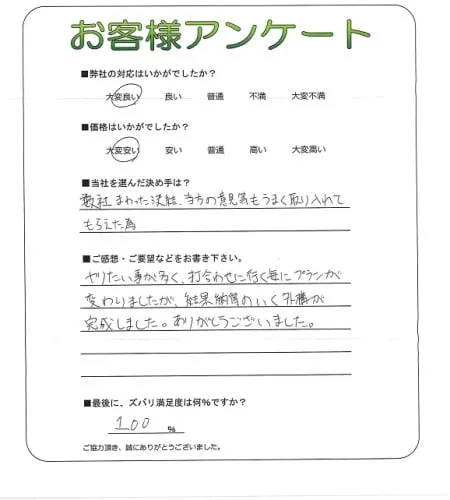 お客様アンケート
■弊社の対応はいかがでしたか？
大変良い 良い 普通 不満 大変不満
■価格はいかがでしたか？
大変安い 安い 普通 高い 大変高い
■当社を選んだ決め手は？
数社まわった決結、当方の意見等もうまく取り入れて
もらえた為
■ご感想・ご要望などをお書き下さい。
やりたい事が多く、打合わせに行く毎にプランが
変わりましたが、結果納得のいく外構が
完成しました。ありがとうございました。
■最後に、ズバリ満足度は何%ですか？
100 %
ご協力頂き、誠にありがとうございました。